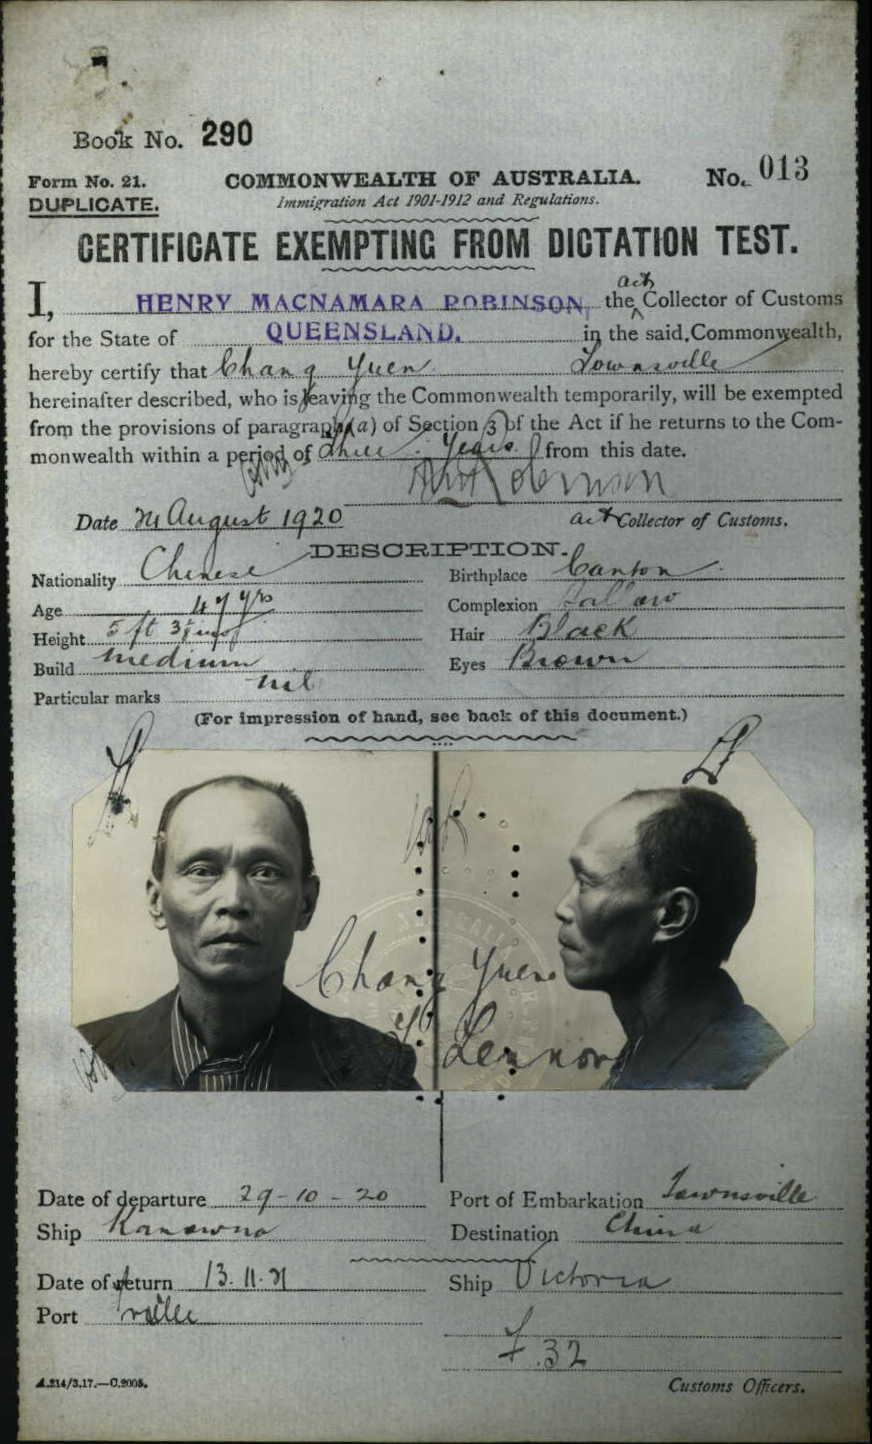 Book No. 290
Form No. 21. COMMONWEALTH OF AUSTRALIA. No. 013
DUPLICATE. Immigration Act 1901-1912 and Regulations.
CERTIFICATE EXEMPTING FROM DICTATION TEST.
I, HENRY MACNAMARA ROBINSON, the act Collector of Customs
for the State of QUEENSLAND. in the said Commonwealth,
hereby certify that Chang Yuen Townsville
hereinafter described, who is leaving the Commonwealth temporarily, will be exempted
from the provisions of paragraph (a) of Section 3 of the Act if he returns to the Com-
monwealth within a period of three years from this date.
Robinson
Date August 1920 act Collector of Customs.
DESCRIPTION.
Nationality Chinese Birthplace Canton
Age 47 yrs Complexion Sallow
Height 5 ft Hair Black
Build medium Eyes Brown
Particular marks nil
(For impression of hand, see back of this document.)
Chang Yuen
Lennon
Date of departure 29-10-20 Port of Embarkation Townsville
Ship Kanowna Destination China
Date of return 13.11.21 Ship Victoria
Port ville
32
A.214/3.17.—C.2005. Customs Officers.